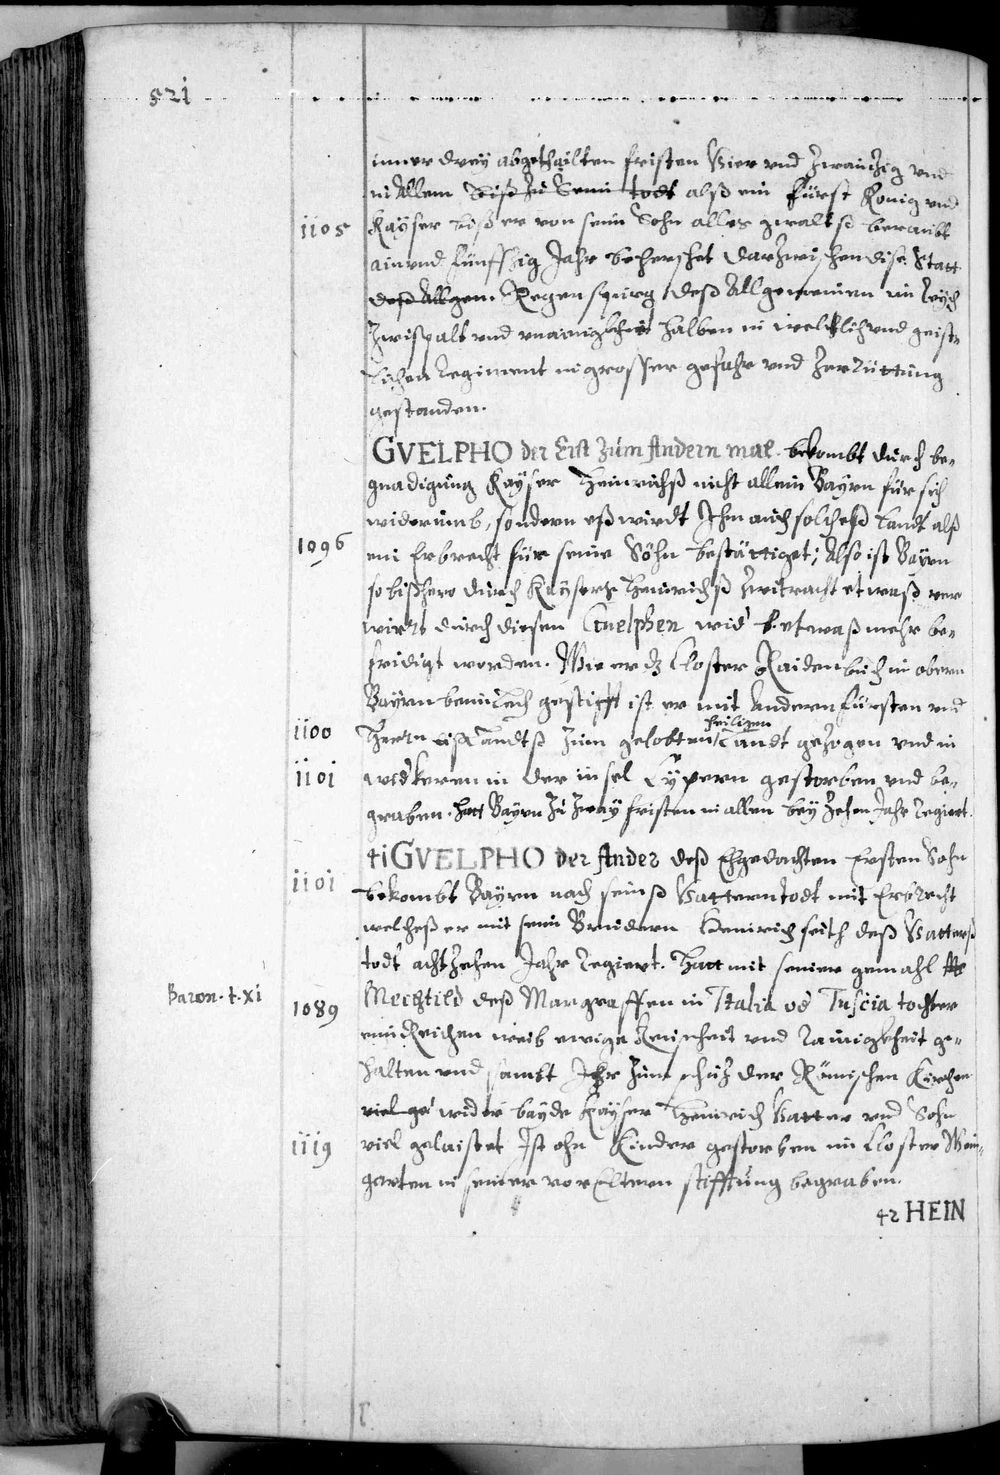 521
inner dreÿ abgethailten fristen Vier und Zwainzig und
in Allem Biß Zu Seim todt alß ein Fürst König und
1105 Kaÿser biß er von seim Sohn alles gwaltß beraubt
ain und fünffzig Jahr beherschet darzwischen dise Statt
deß Allgem. Regenspurg deß Allgemeinen im Reych
Zwispalt und unainigkheit halben in weltlich und geist-
lichen Regiment in grosser gefahr und Zerrüttung
gestanden.
GVELPHO der Erst Zum Andern mal. bekombt durch be-
gnadigung Kaÿser Heinrichß nicht allein Baÿrn für sich
widerumb, sondern eß wirdt Ihm auch solcheß Landt alß
1096 ein Erbrecht für seine Söhn bestättiget; Also ist Baÿrn
so bißhero durch Kaÿserß Heinrichß Zwitracht etwaß ver
wirt durch diesen Guelphen wid etwaß mehr be-
fridigt worden. Wie er dz Closter Raidenbuch in obern
Baÿrn beim Lech gestifft ist er mit Andern Fürsten und
heiligen
1100 Herrn Landtß Zum gelobten Landt gezogen und in
1101 widkeren in der insel Cÿpern gestorben und be-
graben. hatt Baÿrn Zu Zwaÿ fristen in allen beÿ Zehen Jahr regiert.
41 GVELPHO der Ander deß Ehgedachten Ersten Sohn
1101 bekombt Baÿrn nach seinß Vattern todt mit Erbrecht
welcheß er mit seim Bruder Heinrich seith deß Vatterß
todt achtzehen Jahr regiert. Hatt mit seiner gemahl
Baron. t. xi 1089 Mechtild deß Margraffen in Italia vd Tuscia tochter
eim Reichen weib ewige Keuscheit und Rainigkheit ge-
halten und sambt Ihr Zum schuz der Römischen Kirchen
viel ge wider baÿde Kaÿser Heinrich Vatter und Sohn
1119 viel gelaistet Ist ohn Kinder gestorben im Closter Wein-
garten in seiner vor Eltern stifftung begraben.
42 HEIN